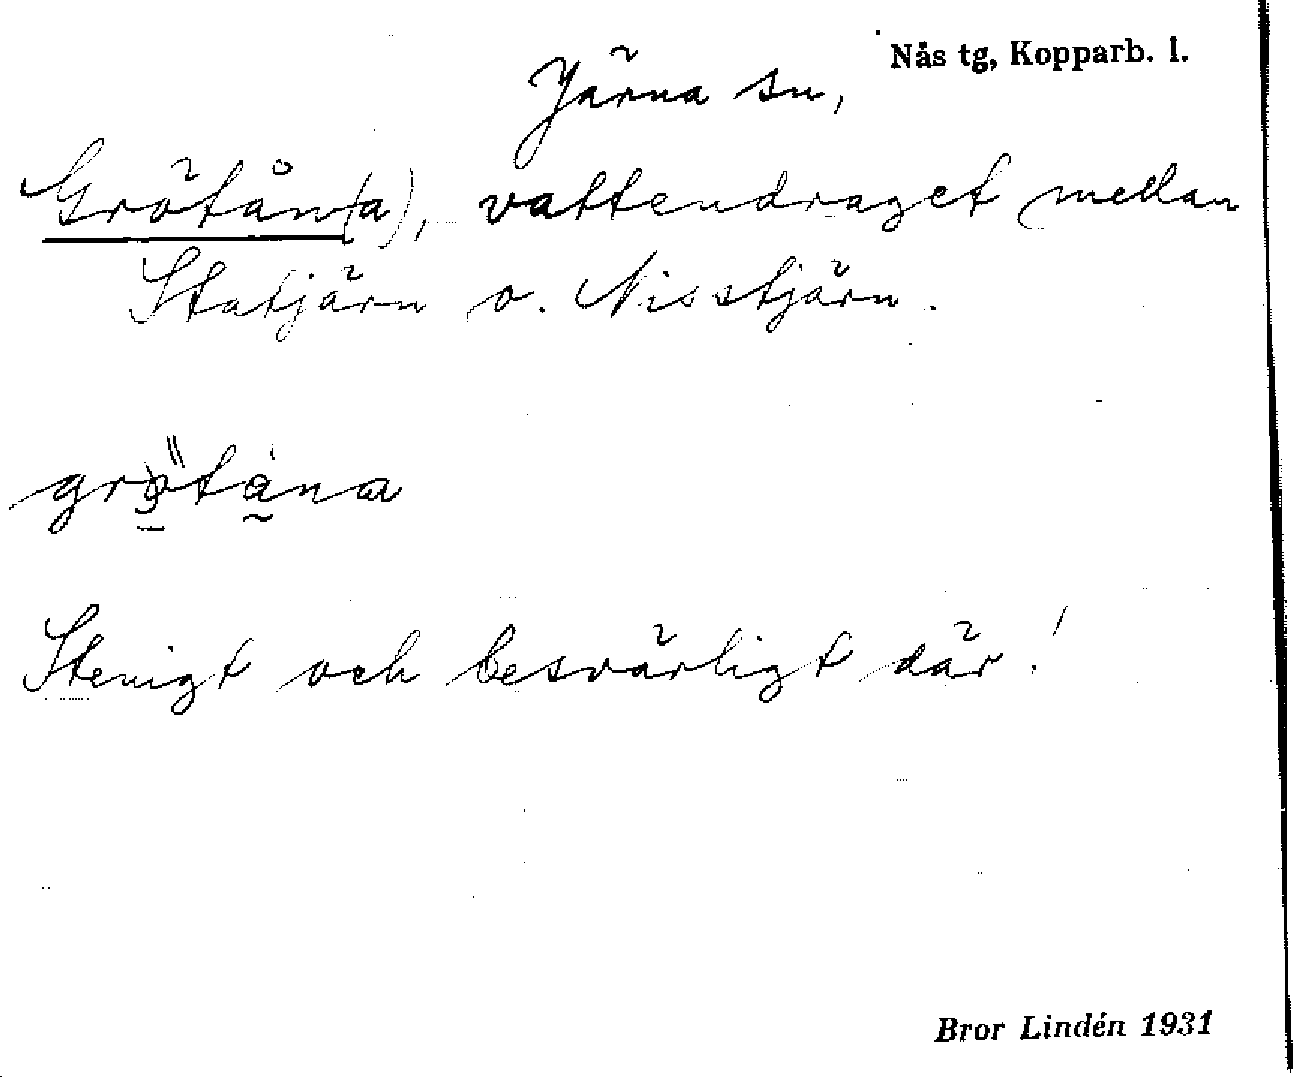 Nås tg, Kopparb. l.
Järna sn,
Grötån(a), vattendraget mellan
Statjärn o. Nisstjärn.
Stenigt och besvärligt där!
Bror Lindén 1931